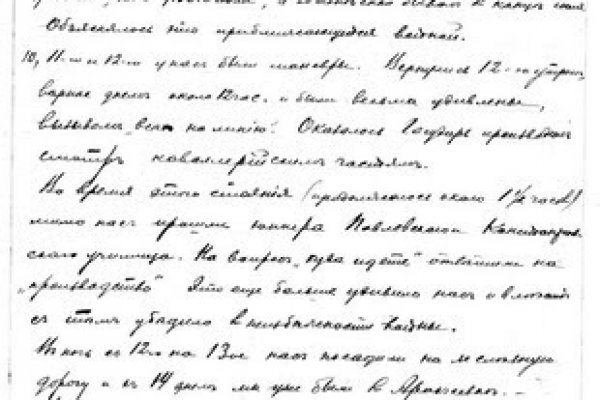 Объяснялось это приближающейся войной.
10, 11-го и 12-го у нас были маневры. Вернулись 12-го утром,
вернее днем около 12 час. и были весьма удивлены,
вызовом „всех на линию“. Оказалось Государь производил
смотр кавалерийским частям.
Во время этого стояния (продолжалось около 1½ часов)
мимо нас прошли юнкера Павловского
училища. На вопрос „куда идете“ ответили на
„производство“ Это еще больше удивило нас и
с тем убедило в неизбежности войны.
В ночь с 12-го на 13-ое нас посадили на железную
дорогу и в 14 днем мы уже были в